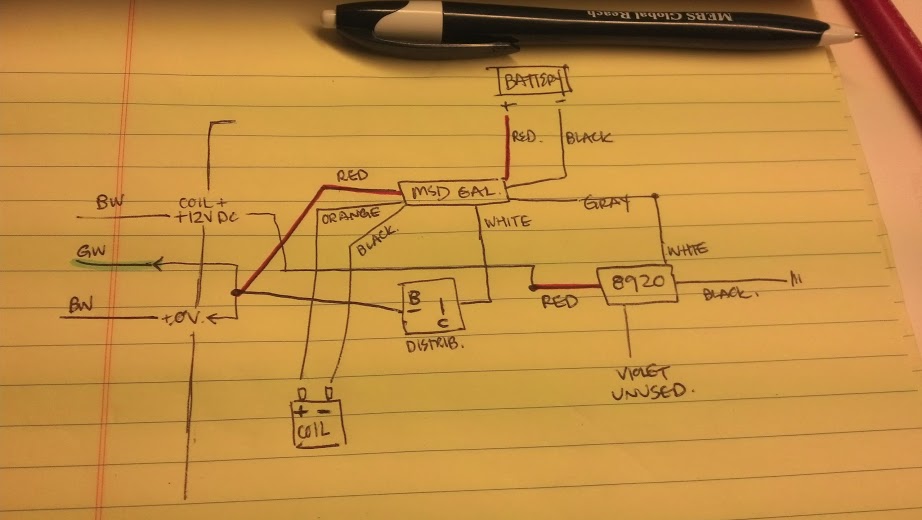 MEBS Global Reach
BATTERY
+ -
RED.
BLACK
RED
MSD GAL.
BW
COIL +
+12VDC
ORANGE
BLACK.
WHITE
GRAY
GW
WHITE
8920
RED
BLACK.
B
- I
C
BW
+0V.
DISTRIB.
VIOLET
UNUSED.
+ -
COIL